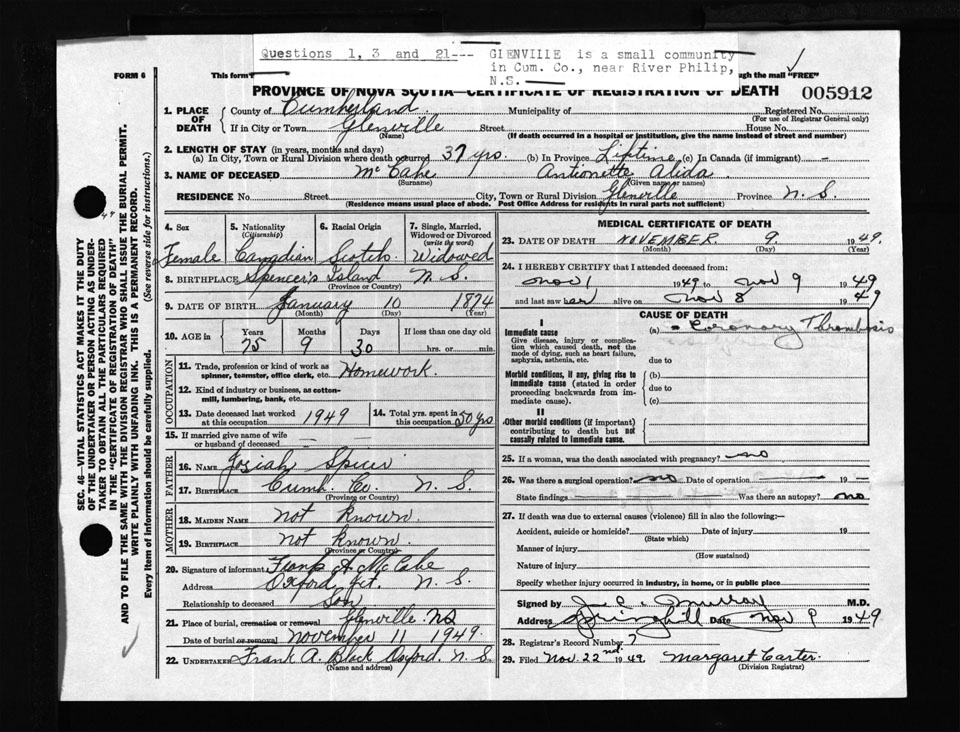 Questions 1, 3 and 21--- GLENVILLE is a small community
in Cum. Co., near River Philip,
N.S.
FORM 6 This form ugh the mail "FREE"
PROVINCE OF NOVA SCOTIA—CERTIFICATE OF REGISTRATION OF DEATH 005912
1. PLACE OF DEATH County of Cumberland Municipality of Registered No.
(For use of Registrar General only)
If in City or Town Glenville Street House No.
(Name) (If death occurred in a hospital or institution, give the name instead of street and number)
2. LENGTH OF STAY (in years, months and days)
(a) In City, Town or Rural Division where death occurred 37 yrs. (b) In Province Liftime (c) In Canada (if immigrant) —
3. NAME OF DECEASED McCabe Antionette Alida
(Surname) (Given name or names)
RESIDENCE No. Street City, Town or Rural Division Glenville Province N.S.
(Residence means usual place of abode. Post Office Address for residents in rural parts not sufficient)
4. Sex 5. Nationality (Citizenship) 6. Racial Origin 7. Single, Married, Widowed or Divorced (write the word)
Female Canadian Scotch Widowed
8. BIRTHPLACE Spencer's Island N.S.
(Province or Country)
9. DATE OF BIRTH January 10 1874
(Month) (Day) (Year)
10. AGE in Years Months Days If less than one day old
75 9 30 hrs. or min.
OCCUPATION
11. Trade, profession or kind of work as spinner, teamster, office clerk, etc. Homework.
12. Kind of industry or business, as cotton-mill, lumbering, bank, etc.
13. Date deceased last worked at this occupation 1949 14. Total yrs. spent in this occupation 50 yrs
15. If married give name of wife or husband of deceased —
FATHER
16. NAME Josiah Spicer
17. BIRTHPLACE Cumb. Co. N.S.
(Province or Country)
MOTHER
18. MAIDEN NAME not Known
19. BIRTHPLACE not Known.
(Province or Country)
20. Signature of informant Frank A. McCabe
Address Oxford Jct. N.S.
Relationship to deceased son
21. Place of burial, cremation or removal Glenville NS
Date of burial or removal November 11 1949.
22. UNDERTAKER Frank A. Black Oxford. N.S.
(Name and address)
MEDICAL CERTIFICATE OF DEATH
23. DATE OF DEATH NOVEMBER. 9. 1949.
(Month) (Day) (Year)
24. I HEREBY CERTIFY that I attended deceased from:
Nov 1 1949 to Nov 9 1949
and last saw her alive on Nov 8 1949
CAUSE OF DEATH
I
Immediate cause (a) Coronary Thrombosis
Give disease, injury or complication which caused death, not the mode of dying, such as heart failure, asphyxia, asthenia, etc. due to
Morbid conditions, if any, giving rise to immediate cause (stated in order proceeding backwards from immediate cause). (b)
due to
(c)
II
Other morbid conditions (if important) contributing to death but not causally related to immediate cause.
25. If a woman, was the death associated with pregnancy? no
26. Was there a surgical operation? no Date of operation 19 —
State findings Was there an autopsy? no
27. If death was due to external causes (violence) fill in also the following:—
Accident, suicide or homicide? Date of injury 19
(State which)
Manner of injury
(How sustained)
Nature of injury
Specify whether injury occurred in industry, in home, or in public place
Signed by J. C. Murray M.D.
Address Springhill Date Nov 9 1949
28. Registrar's Record Number 7
29. Filed Nov. 22nd 1949 Margaret Carter.
(Division Registrar)
SEC. 46—VITAL STATISTICS ACT MAKES IT THE DUTY
OF THE UNDERTAKER OR PERSON ACTING AS UNDERTAKER
TO OBTAIN ALL THE PARTICULARS REQUIRED
IN THE "CERTIFICATE OF REGISTRATION OF DEATH"
AND TO FILE THE SAME WITH THE DIVISION REGISTRAR WHO SHALL ISSUE THE BURIAL PERMIT.
WRITE PLAINLY WITH UNFADING INK. THIS IS A PERMANENT RECORD.
Every item of information should be carefully supplied. (See reverse side for instructions.)